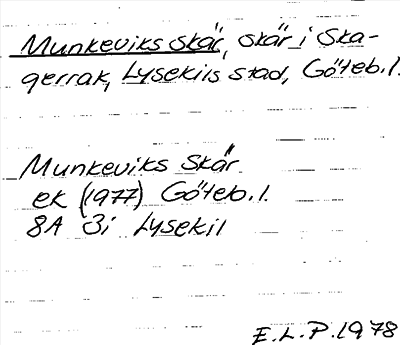 Munkeviks skär, skär i Ska-
gerrak, Lysekils stad, Göteb.l.
Munkeviks skär
ek (1977) Göteb.l.
8A 3i Lysekil
E.L.P.1978